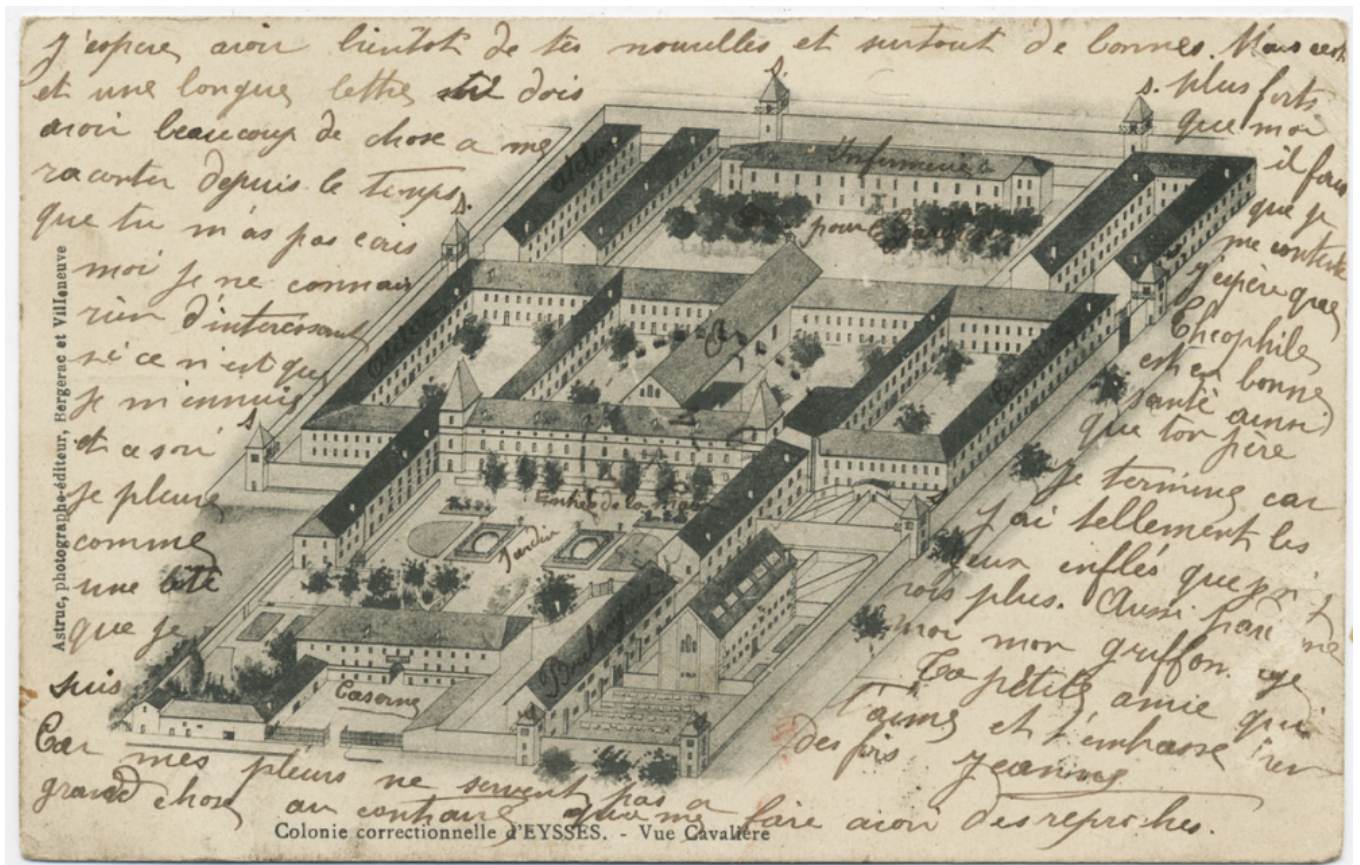 J'espere avoir bientot de tes nouvelles et surtout de bonnes.
et une longue lettre tu dois
avoir beaucoup de chose a me
raconter depuis le temps
que tu m'as pas ecris
moi je ne connais
rien d'interessant
si ce n'est que
je m'ennuie
et ce soir
je pleure
comme
une bête
que je
suis
Car mes pleurs ne servent pas a
grand chose au contraire qu'a me faire avoir des reproches.
Mais c'est
plus forts
que moi
il faut
que je
me contente
j'espère que
Theophile
est en bonne
santé ainsi
que ton père
Je termine car
j'ai tellement les
yeux enflés que j'y
vois plus. Aussi
moi mon griffon
Ta petite amie qui
t'aime et t'embrasse
des fois Jeanne
S.
S.
S.
S.
atelier
Infirmerie
pour
atelier
Entrée de la
Jardin
Boulangerie
Caserne
Astruc, photographe-éditeur, Bergerac et Villeneuve
Colonie correctionnelle d'EYSSES. - Vue Cavalière